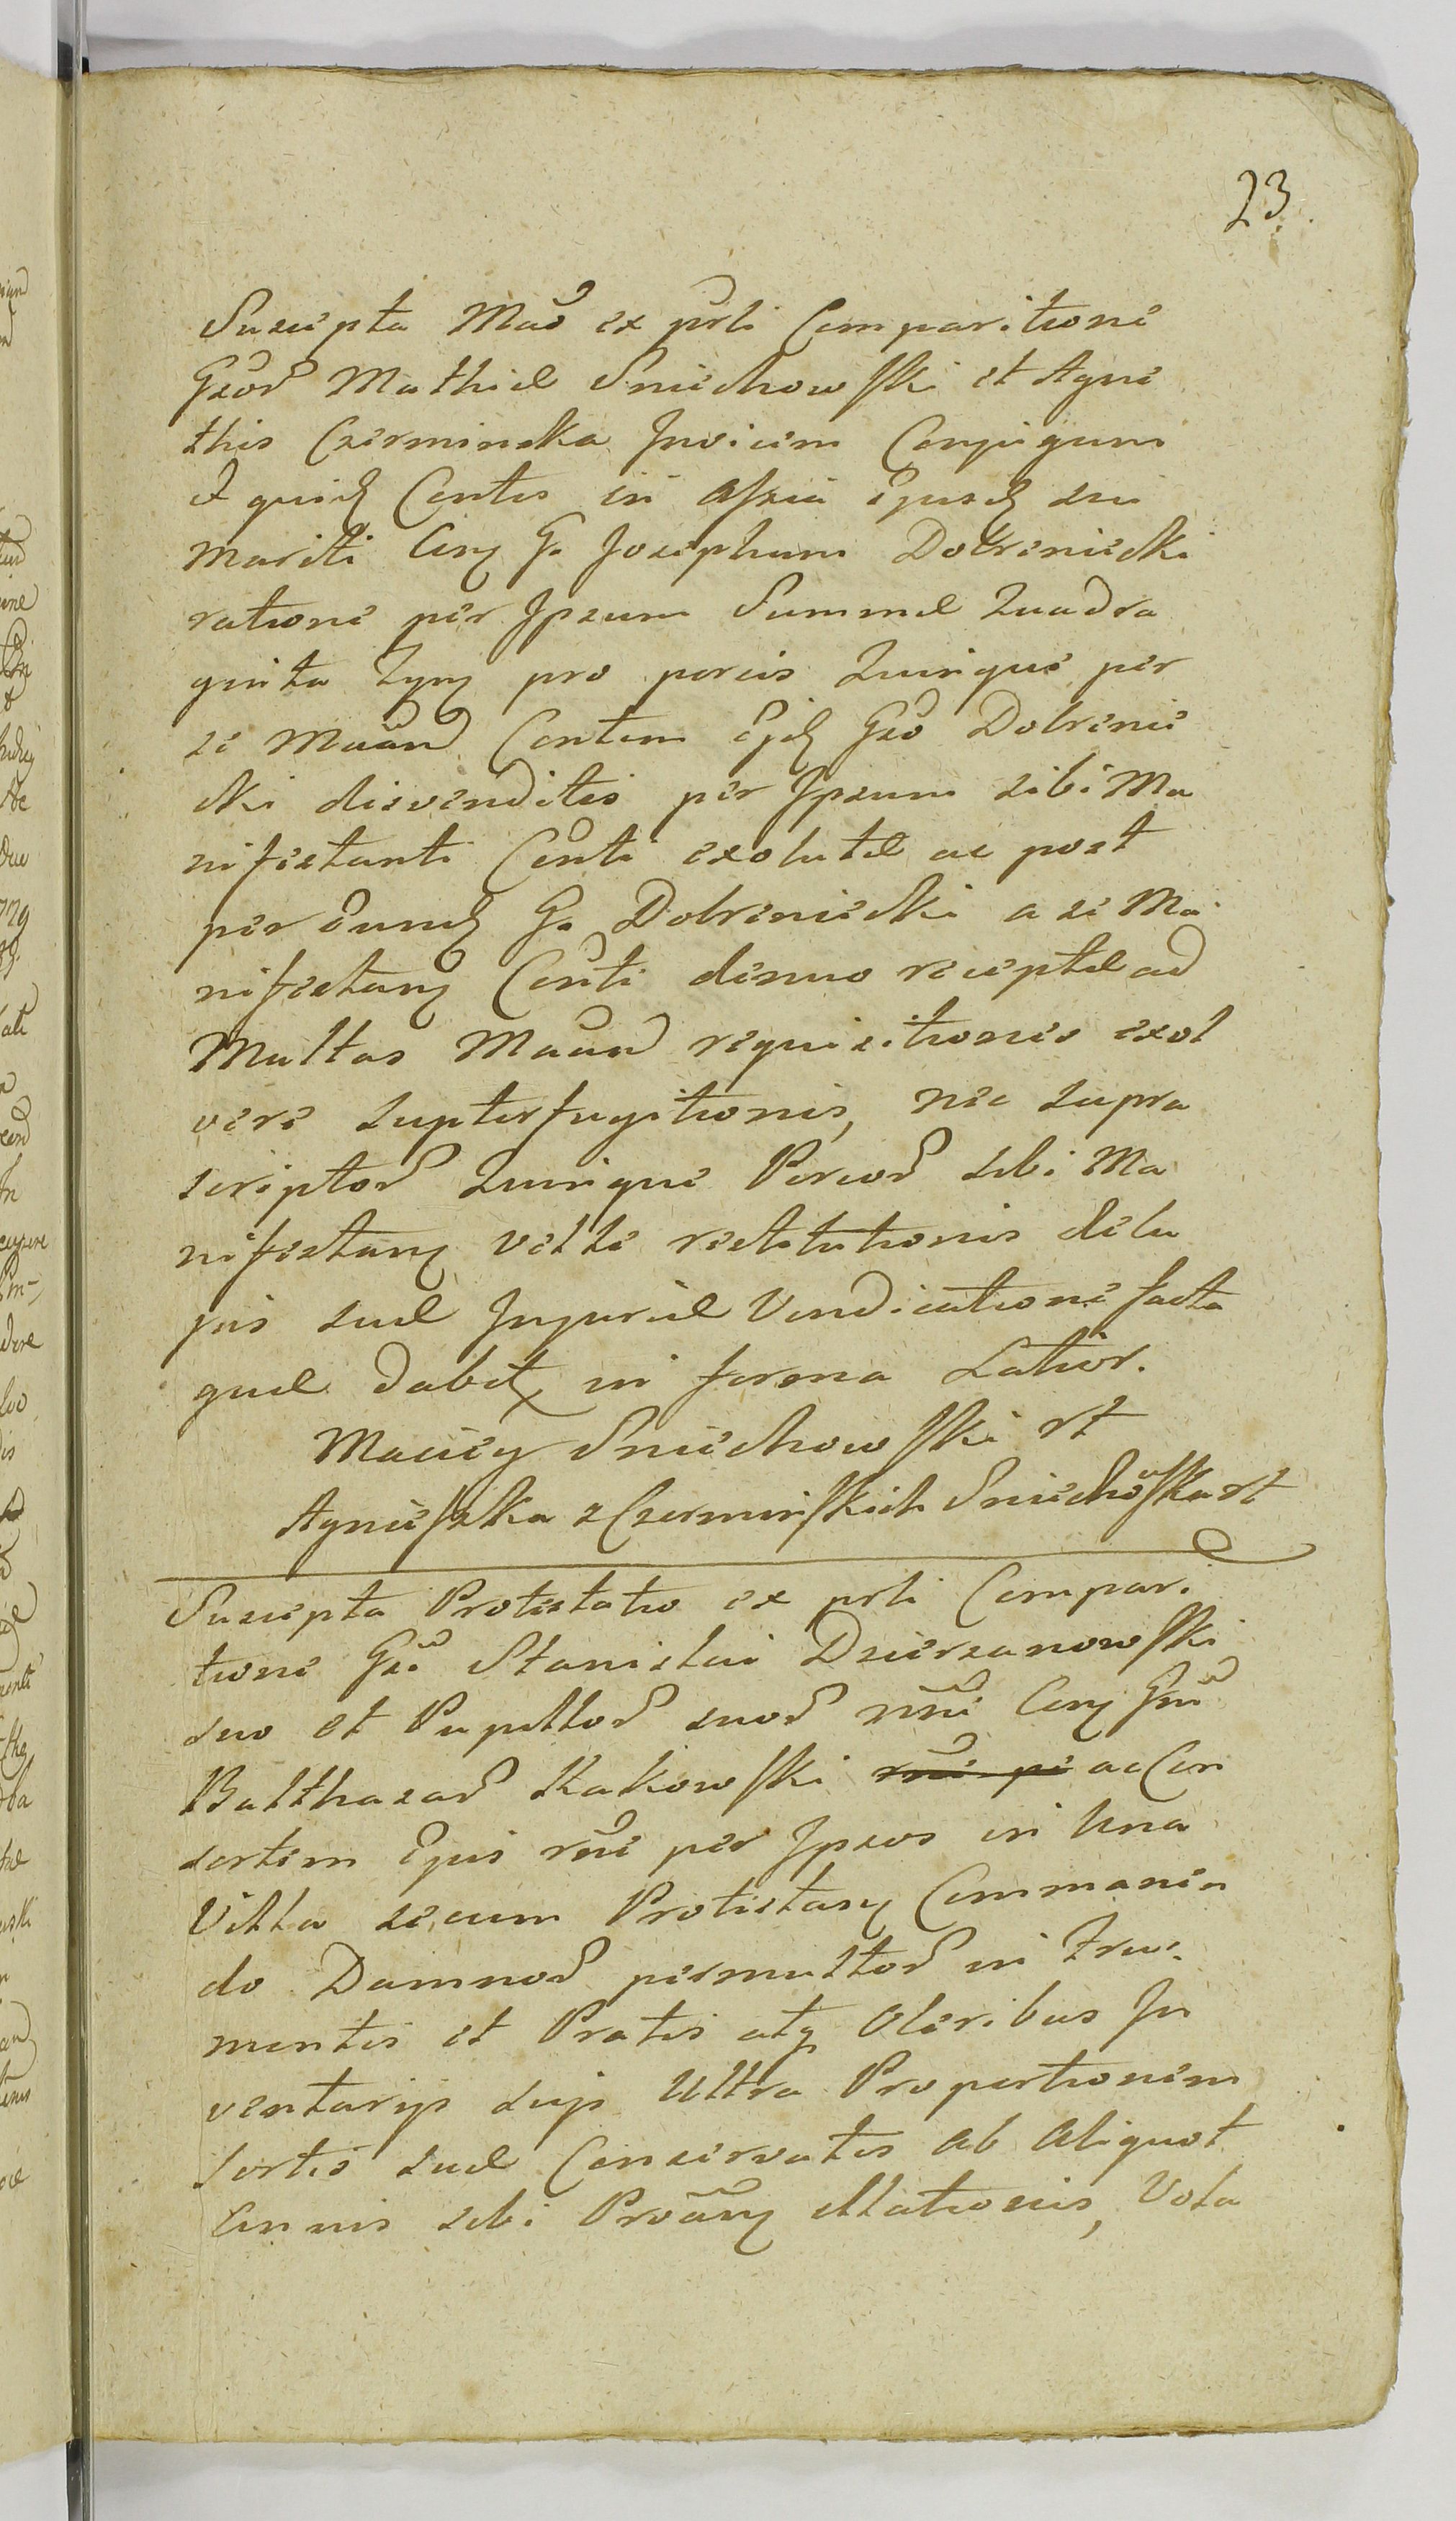 23.
Suscepta Mãõ ex prŝti Comparitione
Gsor̃ Mathiæ Sniechowski et Agne
this Czerminska Invicem Conjugum
Et quid Contis in Assia Ejusd sui
Mariti Cong G. Josephum Dobrzniecki
ratione per Ipsum Summæ Quadra
ginta Tynf pro porcis Quinque per
se Maãnd Contem Ejd Gso Dobrznie
cki disvenditis per Ipsum sibi Ma
nifestanti Conti exolutæ ac post
per Eund G. Dobrzniecki a se Ma
nifestanτ Conti denuo receptæ ad
Multas Maãnd requisitiones exol
vere supterfugitionis, nec supra
scriptor Quinque Porcor sibi Ma
nifestanτ velle restitutionis de la
jus suæ Injuriæ Vendicatione facta
quæ dabitτ in forma Latior.
Maciey Sniechowski rt
Agnieszka z Czerminskich Sniechoska rt
Suscepta Protestatio ex prŝti Compari
tione Gsi Stanislai Dzierzanowski
suo et Pupillor suor nni Cong Gm
Balthasar Kakowski ac Con
sortem Ejus nni per Ipsos in Una
Villa secum Protestanτ Commanen
do Damnor permultor in Fru
mentis et Pratis atq Oleribus In
ventarijs suis Ultra Proportionem
sortis suæ Conservatis ab aliquot
Annis sibi Proãnτ illationis, Vola